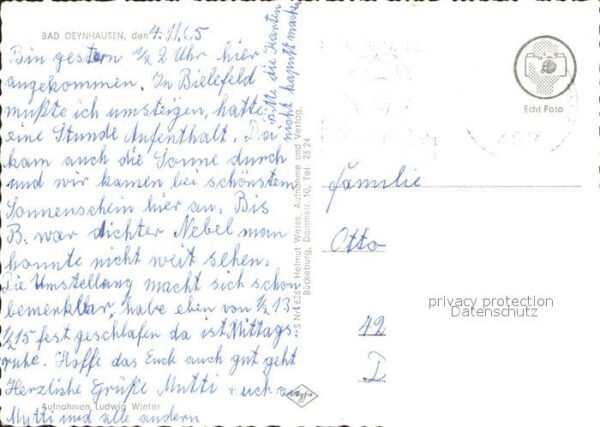 BAD OEYNHAUSEN, den 4.11.65
Bin gestern ½ 2 Uhr hier
angekommen. In Bielefeld
mußte ich umsteigen, hatte
eine Stunde Aufenthalt. Da
kam auch die Sonne durch
und wir kamen bei schönstem
Sonnenschein hier an. Bis
B. war dichter Nebel man
konnte nicht weit sehen.
Die Umstellung macht sich schon
bemerkbar, habe eben von ½ 13
½ 15 fest geschlafen da ist Mittags
ruhe. Hoffe das Euch auch gut geht
Herzliche Grüße Mutti auch an
Mutti und alle andern
Aufnahmen Ludwig Winter
Bitte die Karten
nicht kaputt machen
Helmut Weiss, Aufnahme und Verlag,
Bückeburg, Dammstr. 10, Tel. 23 24
Echt Foto
Familie
Otto
privacy protection
Datenschutz
42
D